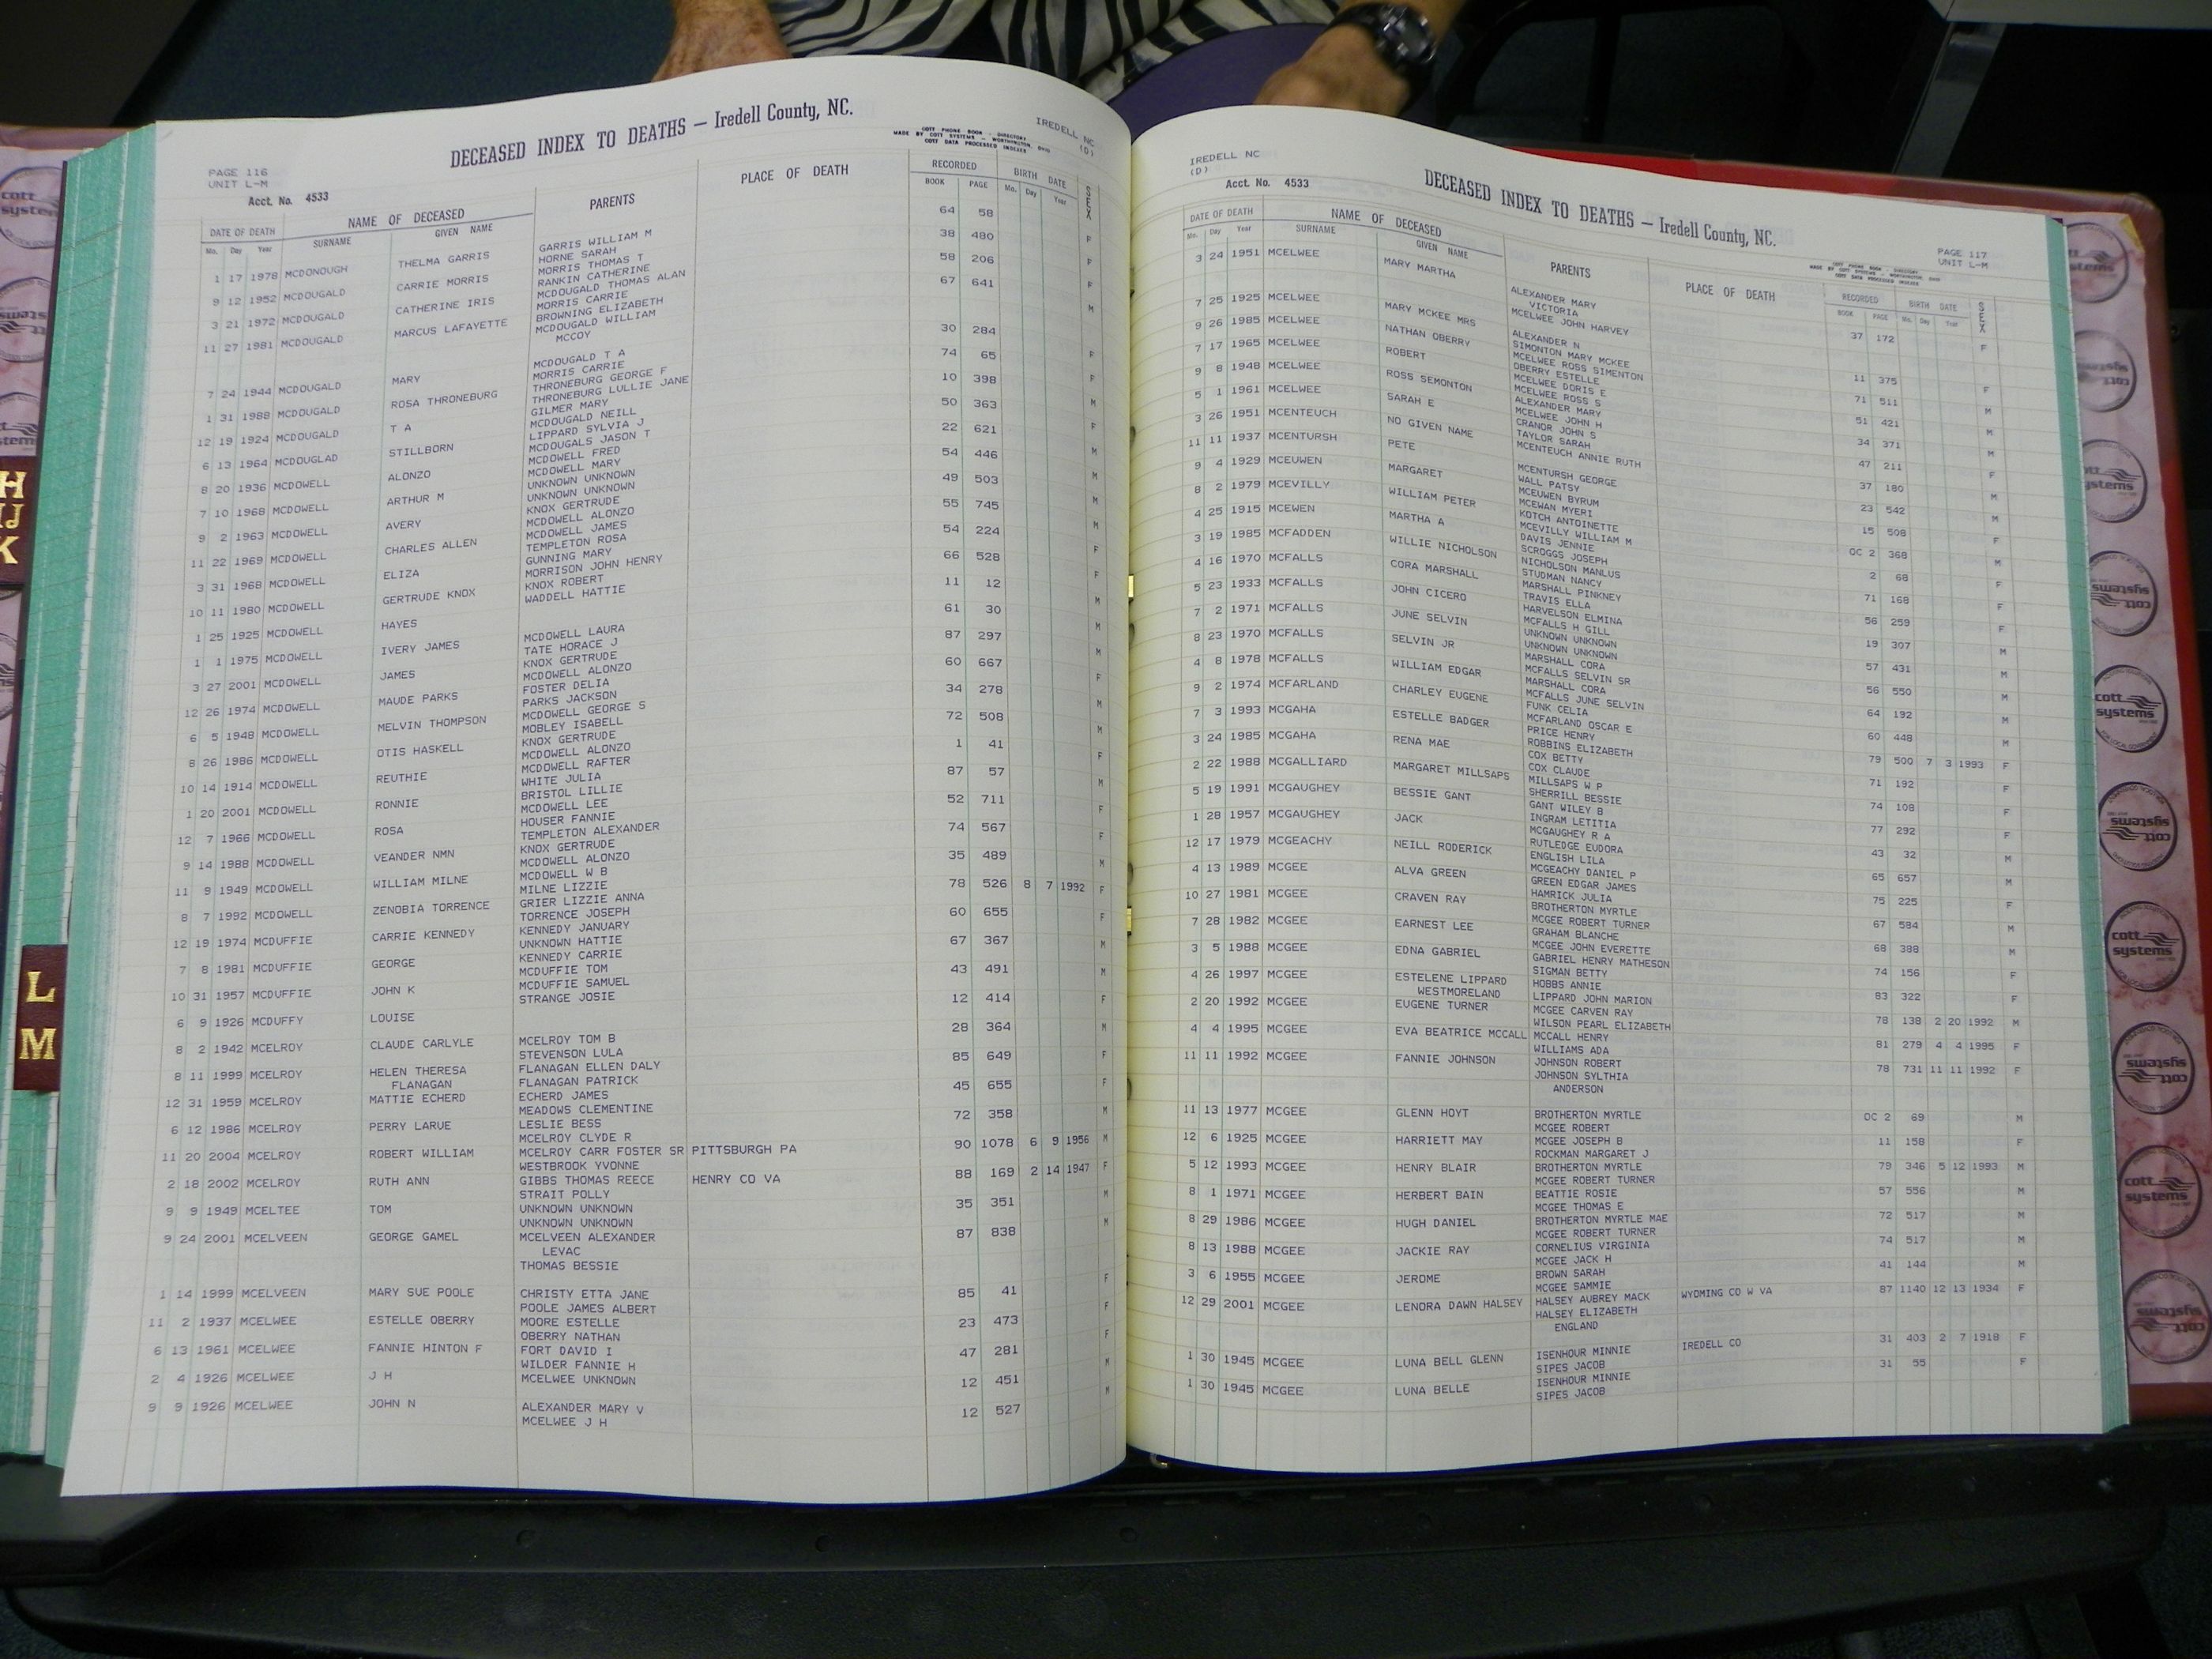 DECEASED INDEX TO DEATHS — Iredell County, NC.
IREDELL NC
(D)
COTT PHONE BOOK - DIRECTORY
MADE BY COTT SYSTEMS - WORTHINGTON, OHIO
COTT DATA PROCESSED INDEXES
PAGE 116
UNIT L-M
Acct. No. 4533
DATE OF DEATH NAME OF DECEASED PARENTS PLACE OF DEATH RECORDED BIRTH DATE SEX
Mo. Day Year SURNAME GIVEN NAME BOOK PAGE Mo. Day Year
1 17 1978 MCDONOUGH THELMA GARRIS GARRIS WILLIAM M 64 58 F
HORNE SARAH
9 12 1952 MCDOUGALD CARRIE MORRIS MORRIS THOMAS T 38 480 F
RANKIN CATHERINE
3 21 1972 MCDOUGALD CATHERINE IRIS MCDOUGALD THOMAS ALAN 58 206 F
MORRIS CARRIE
11 27 1981 MCDOUGALD MARCUS LAFAYETTE BROWNING ELIZABETH 67 641 M
MCDOUGALD WILLIAM
MCCOY
7 24 1944 MCDOUGALD MARY MCDOUGALD T A 30 284 F
MORRIS CARRIE
1 31 1988 MCDOUGALD ROSA THRONEBURG THRONEBURG GEORGE F 74 65 F
THRONEBURG LULLIE JANE
12 19 1924 MCDOUGALD T A GILMER MARY 10 398 M
MCDOUGALD NEILL
6 13 1964 MCDOUGLAD STILLBORN LIPPARD SYLVIA J 50 363 F
MCDOUGALS JASON T
8 20 1936 MCDOWELL ALONZO MCDOWELL FRED 22 621 M
MCDOWELL MARY
7 10 1968 MCDOWELL ARTHUR M UNKNOWN UNKNOWN 54 446 M
UNKNOWN UNKNOWN
9 2 1963 MCDOWELL AVERY KNOX GERTRUDE 49 503 M
MCDOWELL ALONZO
11 22 1969 MCDOWELL CHARLES ALLEN MCDOWELL JAMES 55 745 M
TEMPLETON ROSA
3 31 1968 MCDOWELL ELIZA GUNNING MARY 54 224 F
MORRISON JOHN HENRY
10 11 1980 MCDOWELL GERTRUDE KNOX KNOX ROBERT 66 528 F
WADDELL HATTIE
1 25 1925 MCDOWELL HAYES 11 12 M
1 1 1975 MCDOWELL IVERY JAMES MCDOWELL LAURA 61 30 M
TATE HORACE J
3 27 2001 MCDOWELL JAMES KNOX GERTRUDE 87 297 M
MCDOWELL ALONZO
12 26 1974 MCDOWELL MAUDE PARKS FOSTER DELIA 60 667 F
PARKS JACKSON
6 5 1948 MCDOWELL MELVIN THOMPSON MCDOWELL GEORGE S 34 278 M
MOBLEY ISABELL
8 26 1986 MCDOWELL OTIS HASKELL KNOX GERTRUDE 72 508 M
MCDOWELL ALONZO
10 14 1914 MCDOWELL REUTHIE MCDOWELL RAFTER 1 41 F
WHITE JULIA
1 20 2001 MCDOWELL RONNIE BRISTOL LILLIE 87 57 M
MCDOWELL LEE
12 7 1966 MCDOWELL ROSA HOUSER FANNIE 52 711 F
TEMPLETON ALEXANDER
9 14 1988 MCDOWELL VEANDER NMN KNOX GERTRUDE 74 567 F
MCDOWELL ALONZO
11 9 1949 MCDOWELL WILLIAM MILNE MCDOWELL W B 35 489 M
MILNE LIZZIE
8 7 1992 MCDOWELL ZENOBIA TORRENCE GRIER LIZZIE ANNA 78 526 8 7 1992 F
TORRENCE JOSEPH
12 19 1974 MCDUFFIE CARRIE KENNEDY KENNEDY JANUARY 60 655 F
UNKNOWN HATTIE
7 8 1981 MCDUFFIE GEORGE KENNEDY CARRIE 67 367 M
MCDUFFIE TOM
10 31 1957 MCDUFFIE JOHN K MCDUFFIE SAMUEL 43 491 M
STRANGE JOSIE
6 9 1926 MCDUFFY LOUISE 12 414 F
8 2 1942 MCELROY CLAUDE CARLYLE MCELROY TOM B 28 364 M
STEVENSON LULA
8 11 1999 MCELROY HELEN THERESA FLANAGAN ELLEN DALY 85 649 F
FLANAGAN FLANAGAN PATRICK
12 31 1959 MCELROY MATTIE ECHERD ECHERD JAMES 45 655 F
MEADOWS CLEMENTINE
6 12 1986 MCELROY PERRY LARUE LESLIE BESS 72 358 M
MCELROY CLYDE R
11 20 2004 MCELROY ROBERT WILLIAM MCELROY CARR FOSTER SR PITTSBURGH PA 90 1078 6 9 1956 M
WESTBROOK YVONNE
2 18 2002 MCELROY RUTH ANN GIBBS THOMAS REECE HENRY CO VA 88 169 2 14 1947 F
STRAIT POLLY
9 9 1949 MCELTEE TOM UNKNOWN UNKNOWN 35 351 M
UNKNOWN UNKNOWN
9 24 2001 MCELVEEN GEORGE GAMEL MCELVEEN ALEXANDER 87 838 M
LEVAC
THOMAS BESSIE
1 14 1999 MCELVEEN MARY SUE POOLE CHRISTY ETTA JANE 85 41 F
POOLE JAMES ALBERT
11 2 1937 MCELWEE ESTELLE OBERRY MOORE ESTELLE 23 473 F
OBERRY NATHAN
6 13 1961 MCELWEE FANNIE HINTON F FORT DAVID I 47 281 F
WILDER FANNIE H
2 4 1926 MCELWEE J H MCELWEE UNKNOWN 12 451 M
9 9 1926 MCELWEE JOHN N ALEXANDER MARY V 12 527 M
MCELWEE J H
IREDELL NC
(D)
Acct. No. 4533
DECEASED INDEX TO DEATHS — Iredell County, NC.
COTT PHONE BOOK - DIRECTORY
MADE BY COTT SYSTEMS - WORTHINGTON, OHIO
COTT DATA PROCESSED INDEXES
PAGE 117
UNIT L-M
DATE OF DEATH NAME OF DECEASED PARENTS PLACE OF DEATH RECORDED BIRTH DATE SEX
Mo. Day Year SURNAME GIVEN NAME BOOK PAGE Mo. Day Year
3 24 1951 MCELWEE MARY MARTHA ALEXANDER MARY 37 172 F
VICTORIA
MCELWEE JOHN HARVEY
7 25 1925 MCELWEE MARY MCKEE MRS ALEXANDER N 11 375 F
SIMONTON MARY MCKEE
9 26 1985 MCELWEE NATHAN OBERRY MCELWEE ROSS SIMENTON 71 511 M
OBERRY ESTELLE
7 17 1965 MCELWEE ROBERT MCELWEE DORIS E 51 421 M
MCELWEE ROSS S
9 8 1948 MCELWEE ROSS SEMONTON ALEXANDER MARY 34 371 M
MCELWEE JOHN H
5 1 1961 MCELWEE SARAH E CRANOR JOHN S 47 211 F
TAYLOR SARAH
3 26 1951 MCENTEUCH NO GIVEN NAME MCENTEUCH ANNIE RUTH 37 180 M
11 11 1937 MCENTURSH PETE MCENTURSH GEORGE 23 542 M
WALL PATSY
9 4 1929 MCEUWEN MARGARET MCEUWEN BYRUM 15 508 F
MCEWAN MYERI
8 2 1979 MCEVILLY WILLIAM PETER KOTCH ANTOINETTE OC 2 368 M
MCEVILLY WILLIAM M
4 25 1915 MCEWEN MARTHA A DAVIS JENNIE 2 68 F
SCROGGS JOSEPH
3 19 1985 MCFADDEN WILLIE NICHOLSON NICHOLSON MANLUS 71 168 F
STUDMAN NANCY
4 16 1970 MCFALLS CORA MARSHALL MARSHALL PINKNEY 56 259 F
TRAVIS ELLA
5 23 1933 MCFALLS JOHN CICERO HARVELSON ELMINA 19 307 M
MCFALLS H GILL
7 2 1971 MCFALLS JUNE SELVIN UNKNOWN UNKNOWN 57 431 M
UNKNOWN UNKNOWN
8 23 1970 MCFALLS SELVIN JR MARSHALL CORA 56 550 M
MCFALLS SELVIN SR
4 8 1978 MCFALLS WILLIAM EDGAR MARSHALL CORA 64 192 M
MCFALLS JUNE SELVIN
9 2 1974 MCFARLAND CHARLEY EUGENE FUNK CELIA 60 448 M
MCFARLAND OSCAR E
7 3 1993 MCGAHA ESTELLE BADGER PRICE HENRY 79 500 7 3 1993 F
ROBBINS ELIZABETH
3 24 1985 MCGAHA RENA MAE COX BETTY 71 192 F
COX CLAUDE
2 22 1988 MCGALLIARD MARGARET MILLSAPS MILLSAPS W P 74 108 F
SHERRILL BESSIE
5 19 1991 MCGAUGHEY BESSIE GANT GANT WILEY B 77 292 F
INGRAM LETITIA
1 28 1957 MCGAUGHEY JACK MCGAUGHEY R A 43 32 M
RUTLEDGE EUDORA
12 17 1979 MCGEACHY NEILL RODERICK ENGLISH LILA 65 657 M
MCGEACHY DANIEL P
4 13 1989 MCGEE ALVA GREEN GREEN EDGAR JAMES 75 225 F
HAMRICK JULIA
10 27 1981 MCGEE CRAVEN RAY BROTHERTON MYRTLE 67 584 M
MCGEE ROBERT TURNER
7 28 1982 MCGEE EARNEST LEE GRAHAM BLANCHE 68 388 M
MCGEE JOHN EVERETTE
3 5 1988 MCGEE EDNA GABRIEL GABRIEL HENRY MATHESON 74 156 F
SIGMAN BETTY
4 26 1997 MCGEE ESTELENE LIPPARD HOBBS ANNIE 83 322 F
WESTMORELAND LIPPARD JOHN MARION
2 20 1992 MCGEE EUGENE TURNER MCGEE CARVEN RAY 78 138 2 20 1992 M
WILSON PEARL ELIZABETH
4 4 1995 MCGEE EVA BEATRICE MCCALL MCCALL HENRY 81 279 4 4 1995 F
WILLIAMS ADA
11 11 1992 MCGEE FANNIE JOHNSON JOHNSON ROBERT 78 731 11 11 1992 F
JOHNSON SYLTHIA
ANDERSON
11 13 1977 MCGEE GLENN HOYT BROTHERTON MYRTLE OC 2 69 M
MCGEE ROBERT
12 6 1925 MCGEE HARRIETT MAY MCGEE JOSEPH B 11 158 F
ROCKMAN MARGARET J
5 12 1993 MCGEE HENRY BLAIR BROTHERTON MYRTLE 79 346 5 12 1993 M
MCGEE ROBERT TURNER
8 1 1971 MCGEE HERBERT BAIN BEATTIE ROSIE 57 556 M
MCGEE THOMAS E
8 29 1986 MCGEE HUGH DANIEL BROTHERTON MYRTLE MAE 72 517 M
MCGEE ROBERT TURNER
8 13 1988 MCGEE JACKIE RAY CORNELIUS VIRGINIA 74 517 M
MCGEE JACK H
3 6 1955 MCGEE JEROME BROWN SARAH 41 144 M
MCGEE SAMMIE
12 29 2001 MCGEE LENORA DAWN HALSEY HALSEY AUBREY MACK WYOMING CO W VA 87 1140 12 13 1934 F
HALSEY ELIZABETH
ENGLAND
1 30 1945 MCGEE LUNA BELL GLENN ISENHOUR MINNIE IREDELL CO 31 403 2 7 1918 F
SIPES JACOB
1 30 1945 MCGEE LUNA BELLE ISENHOUR MINNIE 31 55 F
SIPES JACOB
H
IJ
K
L
M
cott systems
cott systems
cott systems
cott systems
cott systems
cott systems
cott systems
cott systems